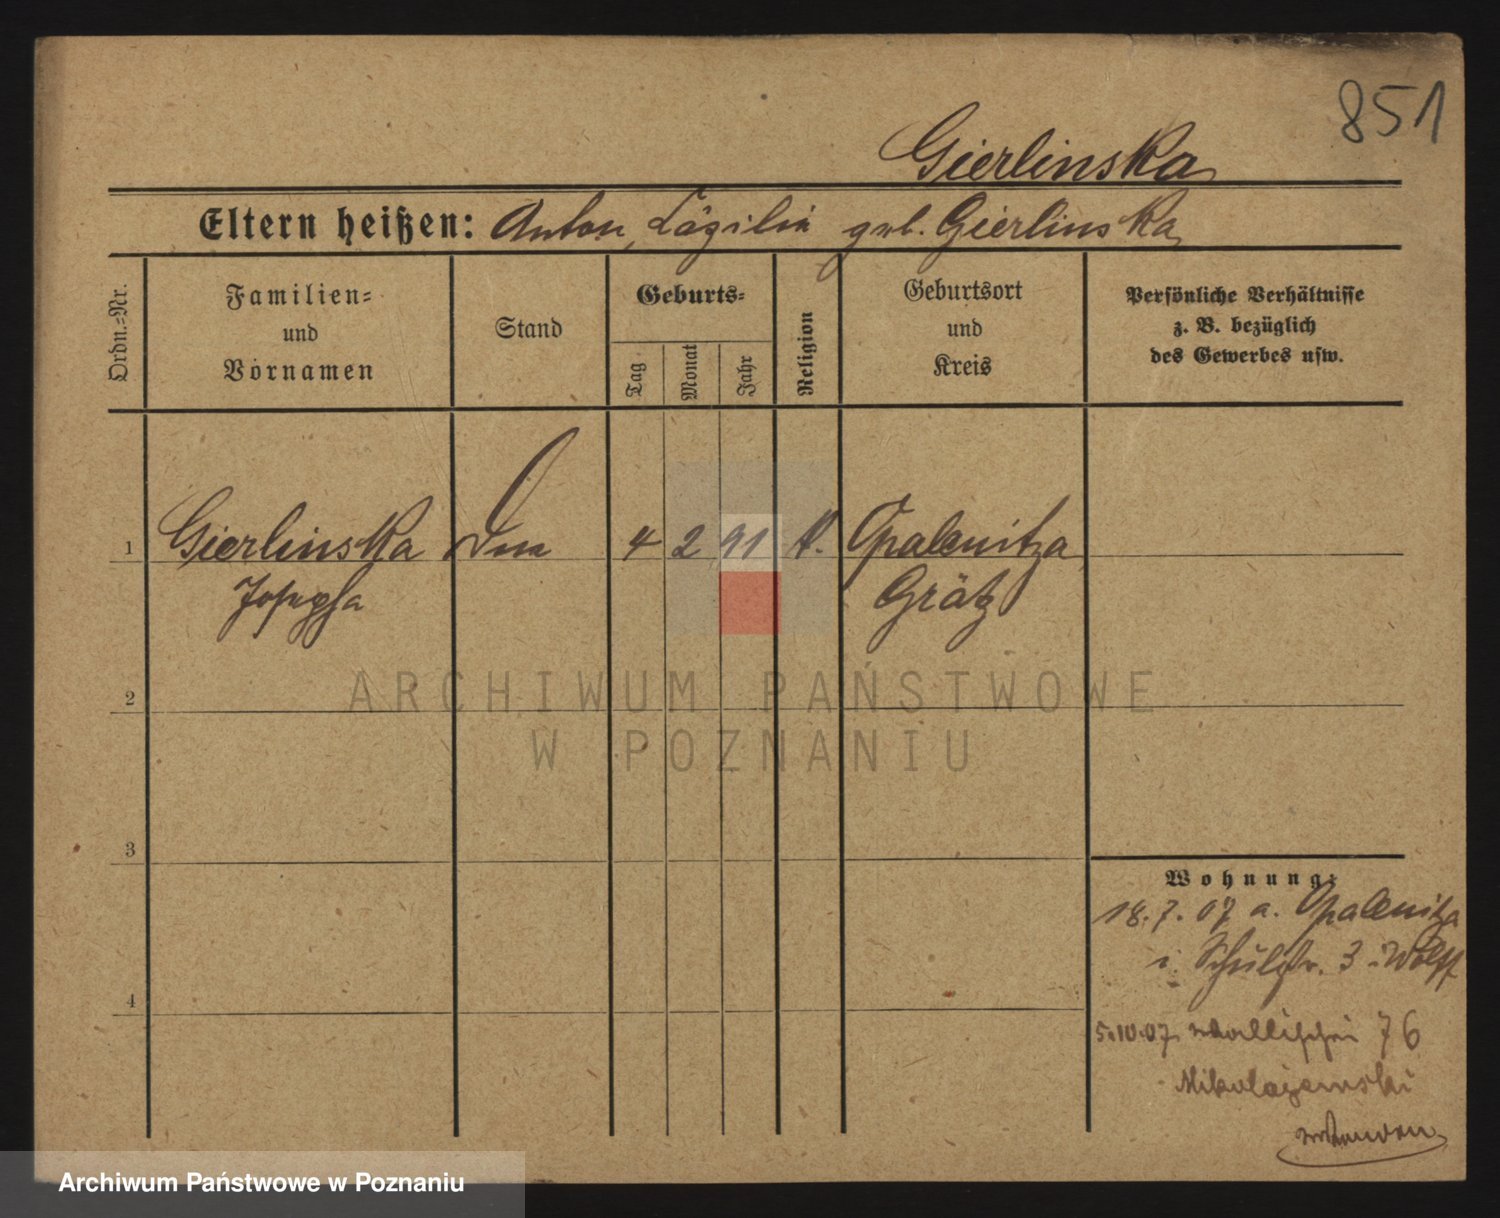 851
Gierlinska
Eltern heißen: Anton, Cäzilia geb. Gierlinska
Ordn.=Nr.
Familien=
und
Vornamen
Stand
Geburts=
Tag
Monat
Jahr
Religion
Geburtsort
und
Kreis
Persönliche Verhältnisse
z. B. bezüglich
des Gewerbes usw.
1 Gierlinska 4 2 91 k. Opalenitza
Josepha Grätz
2
3
4
Wohnung:
18.7.07 a. Opalenitza
i. Schulstr. 3 Wolff
5.10.07 Wallischei 76
Mikolajewski
ARCHIWUM PAŃSTWOWE
W POZNANIU
Archiwum Państwowe w Poznaniu